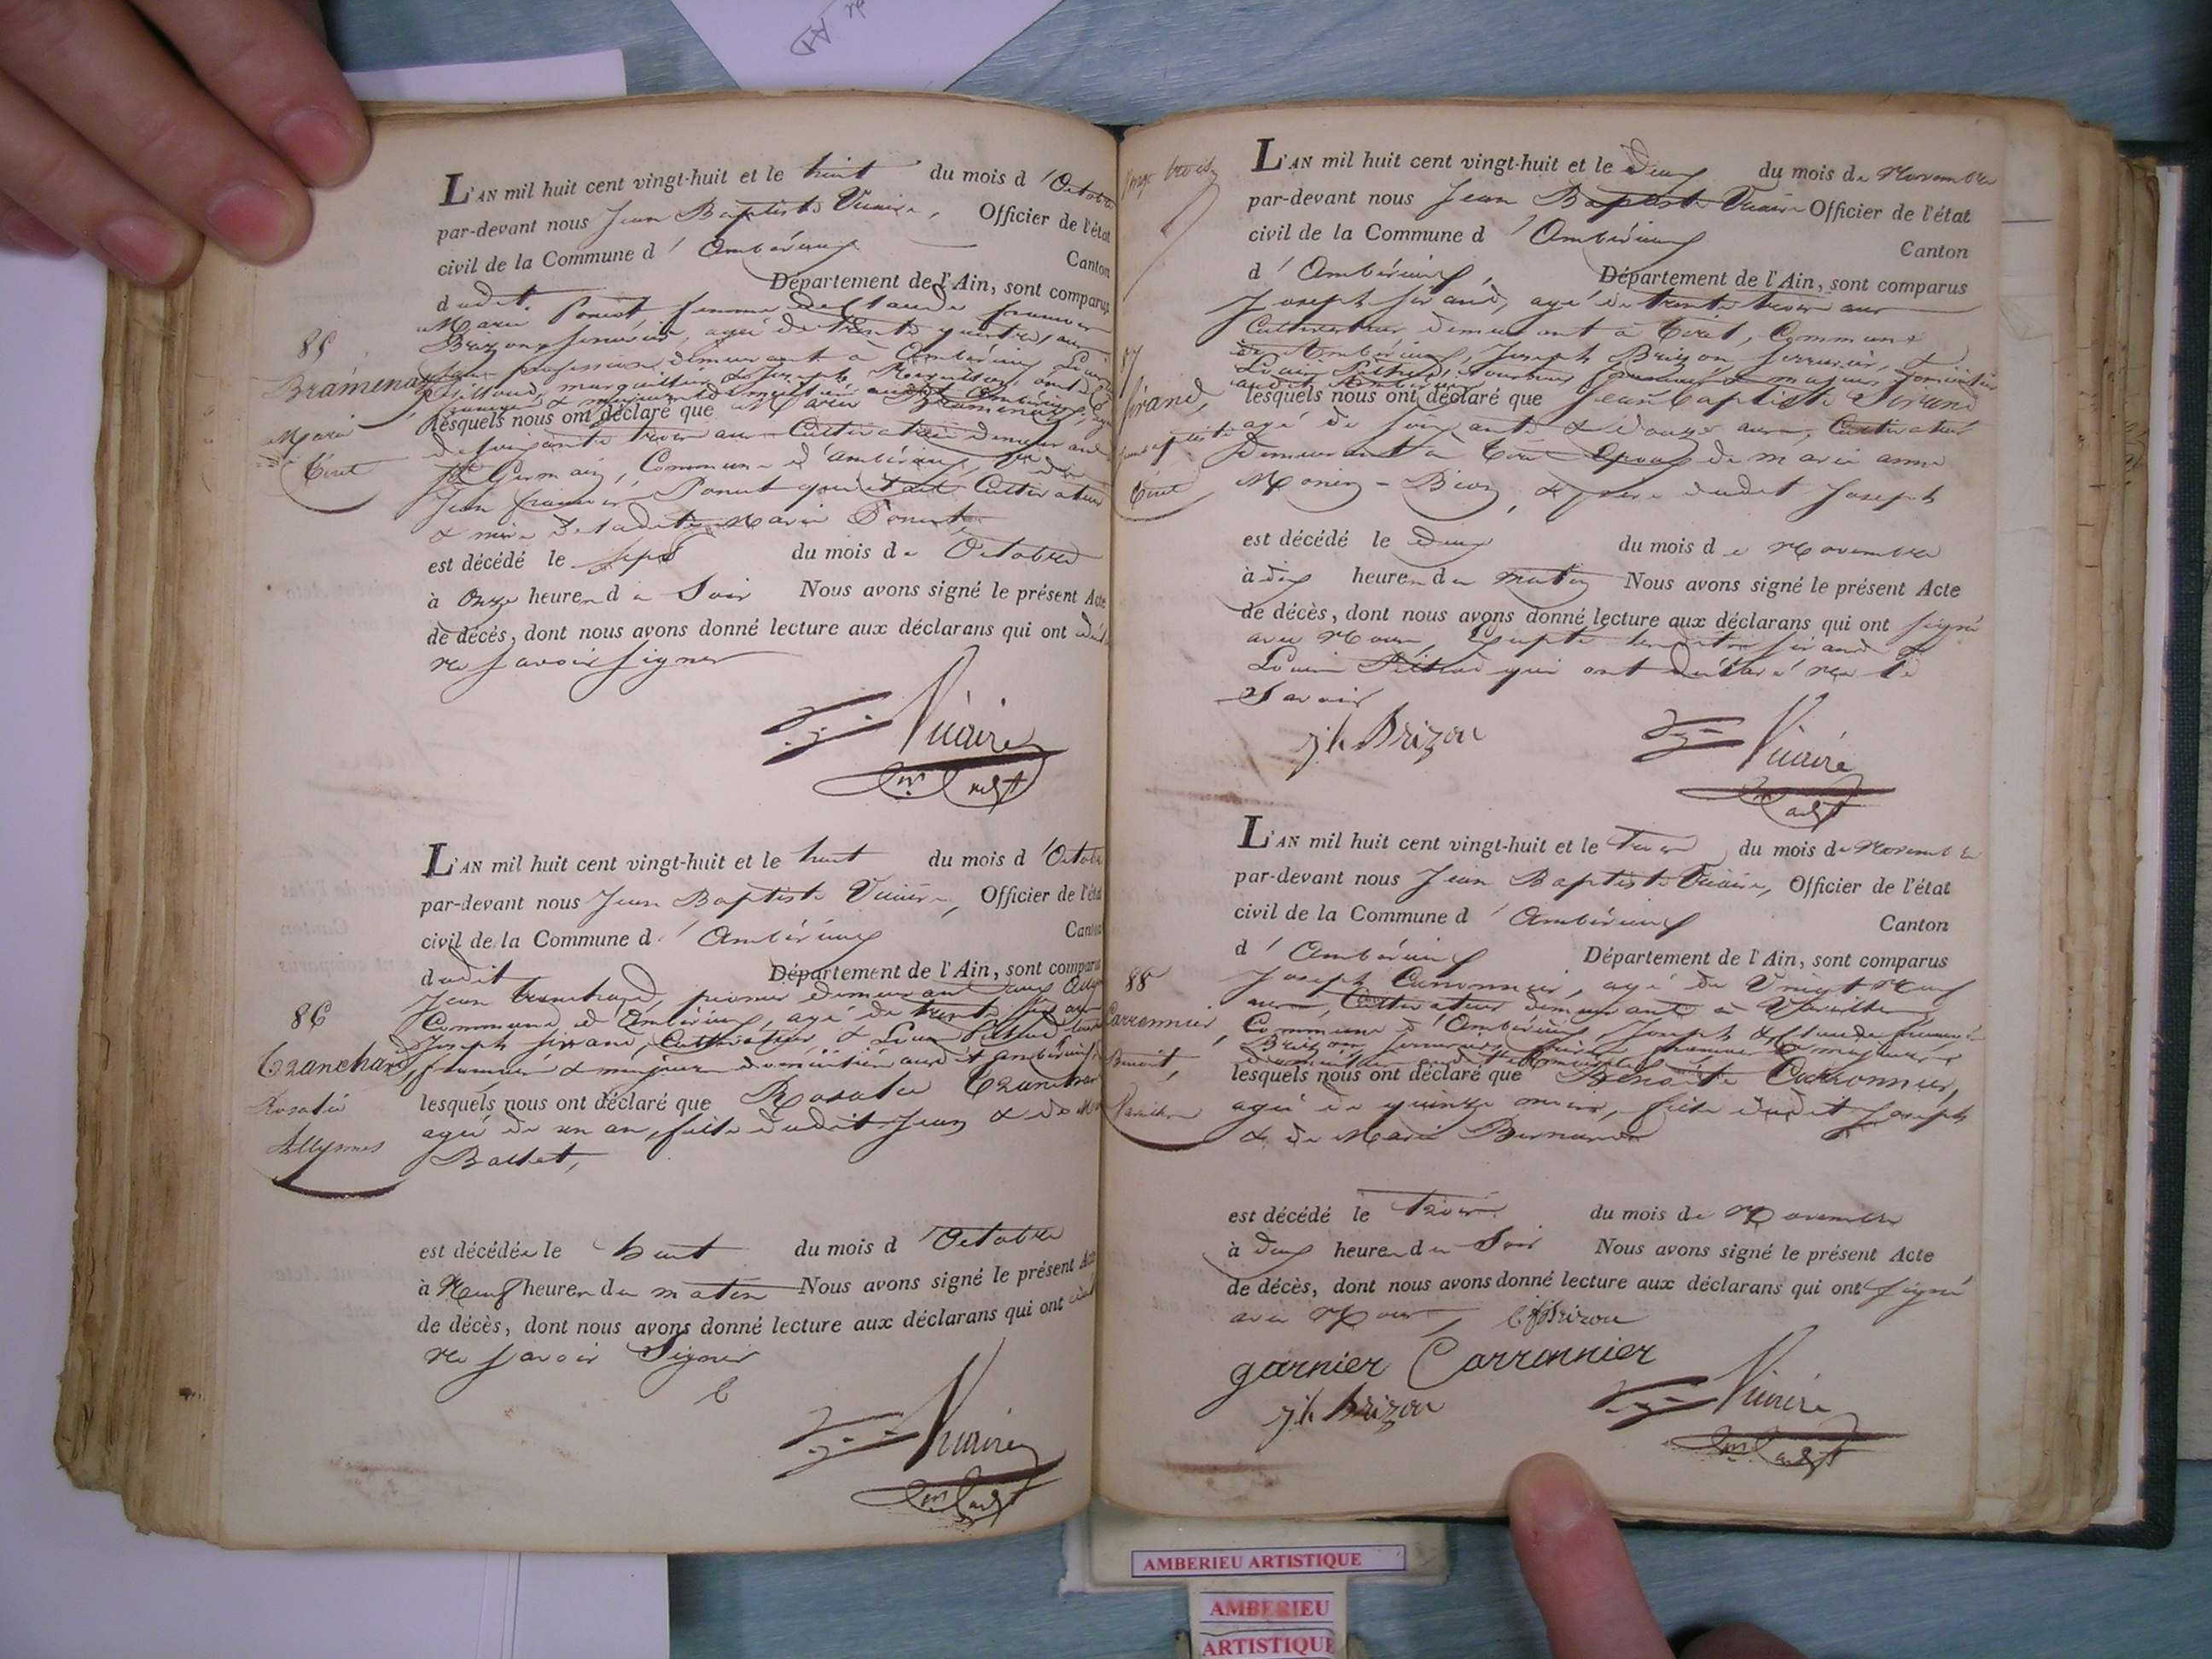 L'AN mil huit cent vingt-huit et le huit du mois d'Octobre
par-devant nous Jean Baptiste Vicaire, Officier de l'état
civil de la Commune d'Ambérieux Canton
dudit Département de l'Ain, sont comparus
Marie Ponset femme de Claude françois
Brizon serrurier, agée de trente quatre ans
sans profession demeurant à Ambérieux
marguillier & Joseph
85
Bramenay
Marie
Tiret
lesquels nous ont déclaré que Marie Bramenay, agée
de soixante trois ans Cultivatrice demeurant
St Germain, Commune d'ambérieux, Vve de
Jean françois Ponset qui était Cultivateur
& mère de ladite Marie Ponset
est décédé le sept du mois de Octobre
à Onze heures du Soir Nous avons signé le présent Acte
de décès, dont nous avons donné lecture aux déclarans qui ont
ne savoir signer
Vicaire
L'AN mil huit cent vingt-huit et le huit du mois d'Octobre
par-devant nous Jean Baptiste Vicaire, Officier de l'état
civil de la Commune d'Ambérieux Canton
dudit Département de l'Ain, sont comparus
Jean Tranchard, demeurant aux Allymes
Commune d'Ambérieux, agé de trente six ans
Joseph Sirand, Cultivateur, & Louis
françois & majeurs domiciliés audit ambérieux,
86
Tranchard,
Rosalie
Allymes
lesquels nous ont déclaré que Rosalie Tranchard
agée de un an, fille dudit Jean & de
Ballet,
est décédée le huit du mois d'Octobre
à Neuf heures du matin Nous avons signé le présent Acte
de décès, dont nous avons donné lecture aux déclarans qui ont
ne savoir Signer
Vicaire
L'AN mil huit cent vingt-huit et le Deux du mois de Novembre
par-devant nous Jean Baptiste Vicaire Officier de l'état
civil de la Commune d'Ambérieux Canton
d'Ambérieux, Département de l'Ain, sont comparus
Joseph Sirand, agé de trente trois ans
Cultivateur demeurant à Tiret, Commune
d'Ambérieux, Joseph Brizon serrurier, &
audit Ambérieux
87
Sirand,
Jean Baptiste
Tiret
lesquels nous ont déclaré que Jean Baptiste Sirand
agé de soixante & douze ans, Cultivateur
Demeurant à Tiret Epoux de marie anne
Monin-Bion, & père dudit Joseph
est décédé le Deux du mois de Novembre
à dix heures du matin Nous avons signé le présent Acte
de décès, dont nous avons donné lecture aux déclarans qui ont signé
avec Nous, Excepté Sirand &
Louis qui ont déclaré ne le
Savoir
jh Brizon Vicaire
L'AN mil huit cent vingt-huit et le Trois du mois de Novembre
par-devant nous Jean Baptiste Vicaire, Officier de l'état
civil de la Commune d'Ambérieux Canton
d'Ambérieux Département de l'Ain, sont comparus
Joseph Carronnier, agé de Vingt Neuf
ans, Cultivateur demeurant à Vareilles
Commune d'Ambérieux, Joseph & Claude françois
Brizon serruriers
88
Carronnier,
Benoite,
Vareilles
lesquels nous ont déclaré que Benoite Carronnier,
agée de quinze mois, fille dudit Joseph
& de Marie Bernard
est décédé le Trois du mois de Novembre
à deux heures du Soir Nous avons signé le présent Acte
de décès, dont nous avons donné lecture aux déclarans qui ont signé
avec Nous, Brizon
garnier Carronnier
jh Brizon Vicaire
AMBERIEU ARTISTIQUE
AMBERIEU
ARTISTIQUE